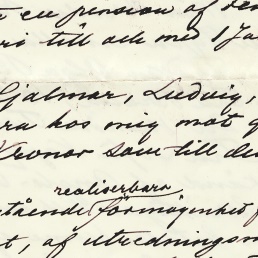 en pension af den
till och med 1 Ja
Hjalmar, Ludvig,
ra hos mig mot
Kronor som till de
realiserbara
stående förmögenhet f
t, af utrednings